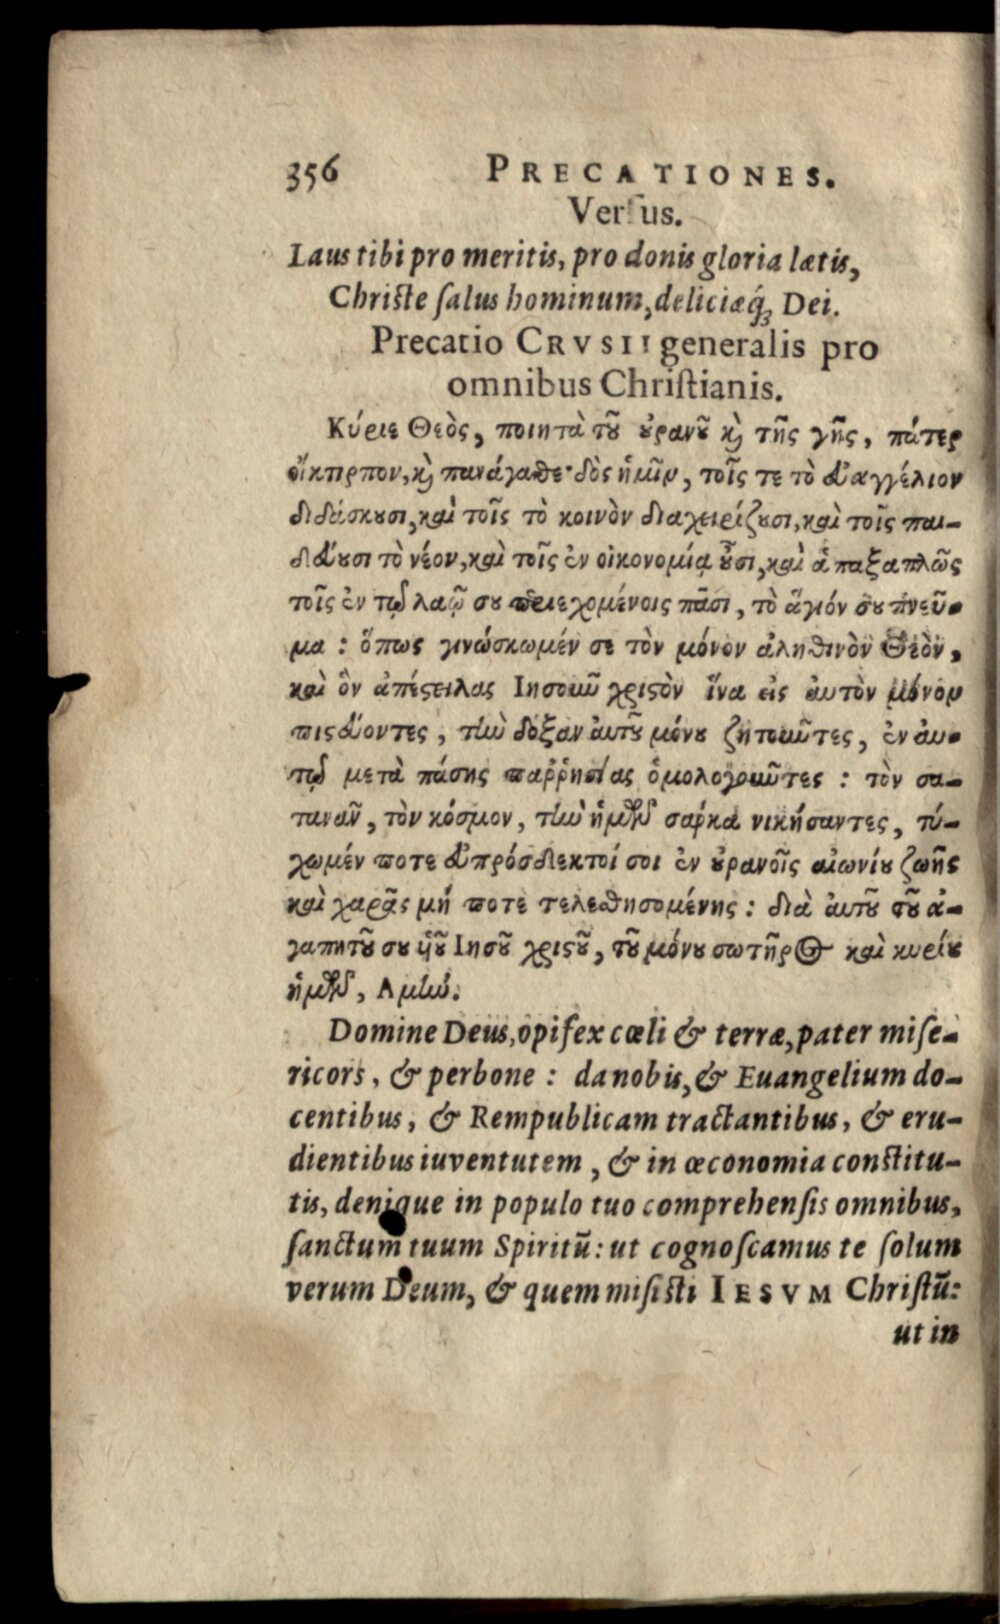 356 PRECATIONES.
Verſus.
Laus tibi pro meritis, pro donis gloria lætis,
Christe ſalus hominum, deliciæq́; Dei.
Precatio CRVSII generalis pro
omnibus Chriſtianis.
Κύριε Θεὸς, ποιητὰ τȣ͂ ȣ̓ρανȣ͂ ϗ̀ τῆς γῆς, πάτερ
οἴκτιρμον, ϗ̀ πανάγαθε· δὸς ἡμῖν, τοῖς τε τὸ ἐυαγγέλιον
διδάσκȣσι, καὶ τοῖς τὸ κοινὸν διαχειρίζȣσι, καὶ τοῖς παι-
δέυȣσι τὸ νέον, καὶ τοῖς ἐν οἰκονομίᾳ ȣ̓͂σι, καὶ ἁπαξαπλῶς
τοῖς ἐν τῷ λαῷ σȣ περιεχομένοις πᾶσι, τὸ ἅγιόν σȣ πνεῦ-
μα : ὅπως γινώσκωμέν σε τὸν μόνον ἀληθινὸν Θεὸν,
καὶ ὃν ἀπέϛειλας Ιησοιῶ χριϛὸν ἵνα εἰς ἀυτὸν μόνον
πιϛέυοντες, τίω δόξαν ἀυτȣ͂ μόνȣ ζητοιῶτες, ἐν ἀυ-
τῷ μετὰ πάσης παῤῥησίας ὁμολογοιῶτες : τὸν σα-
τανᾶν, τὸν κόσμον, τίω ἡμῶν σάρκα νικήσαντες, τύ-
χωμέν ποτε ἐυπρόσδεκτοί σοι ἐν ȣ̓ρανοῖς αἰωνίȣ ζωῆς
καὶ χαρᾶς μή ποτε τελεθησομένης : διὰ ἀυτȣ͂ τȣ͂ ἀ-
γαπητȣ͂ σȣ ὑȣ͂ Ιησȣ͂ χριϛȣ͂, τȣ͂ μόνȣ σωτῆρος καὶ κυρίȣ
ἡμῶν, Αμίω.
Domine Deus, opifex cœli & terræ, pater miſe-
ricors, & perbone : da nobis, & Euangelium do-
centibus, & Rempublicam tractantibus, & eru-
dientibus iuventutem, & in œconomia constitu-
tis, denique in populo tuo comprehenſis omnibus,
ſanctum tuum Spiritū: ut cognoſcamus te ſolum
verum Deum, & quem miſisti IESVM Chriſtū:
ut in